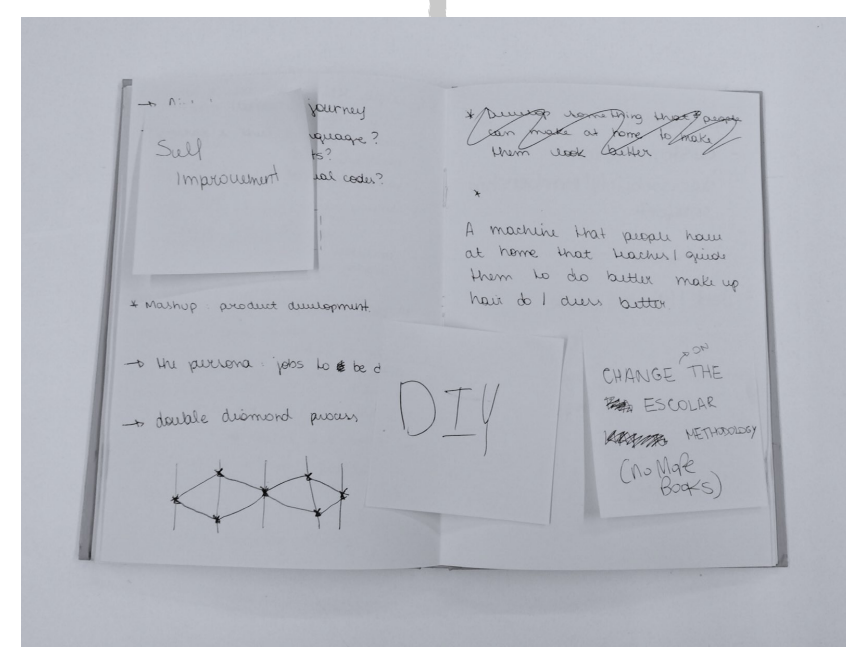 journey
guage?
ts?
ual codes?
Self
Improvement
* Mashup: product development
→ the persona: jobs to be d
→ double diamond process
* Develop something that people
can make at home to make
them look better
*
A machine that people have
at home that teaches / guide
them to do better make up
hair do / dress better
DIY
ON
CHANGE THE
ESCOLAR
METHODOLOGY
(No More
Books)